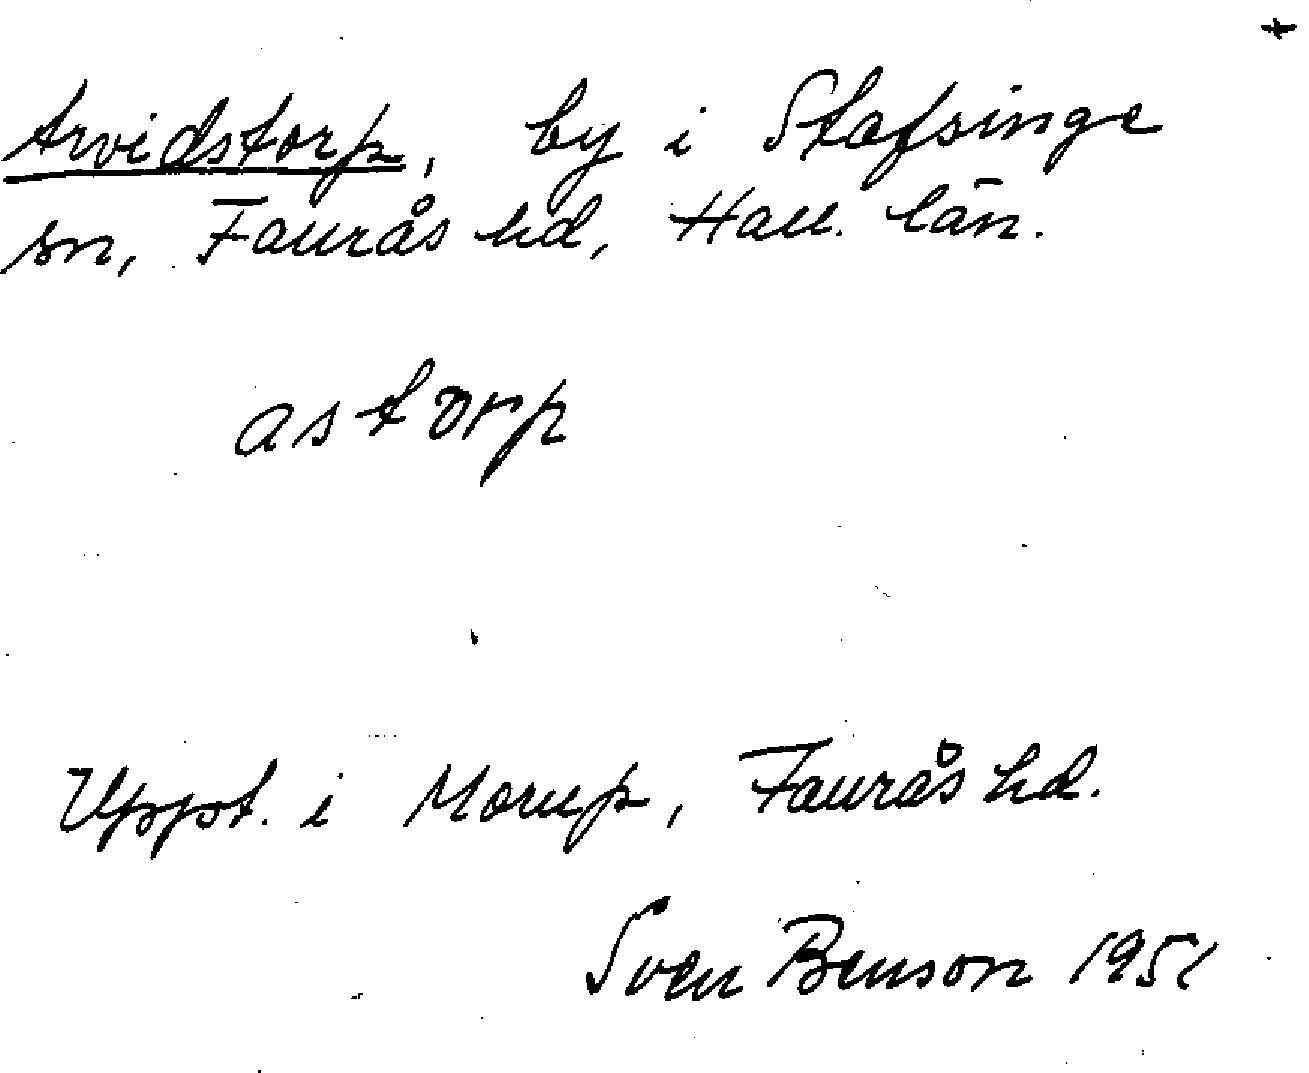 Arvidstorp, by i Stafsinge
sn, Faurås hd, Hall. län.
astorp
Uppt. i Morup, Faurås hd.
Sven Benson 1951